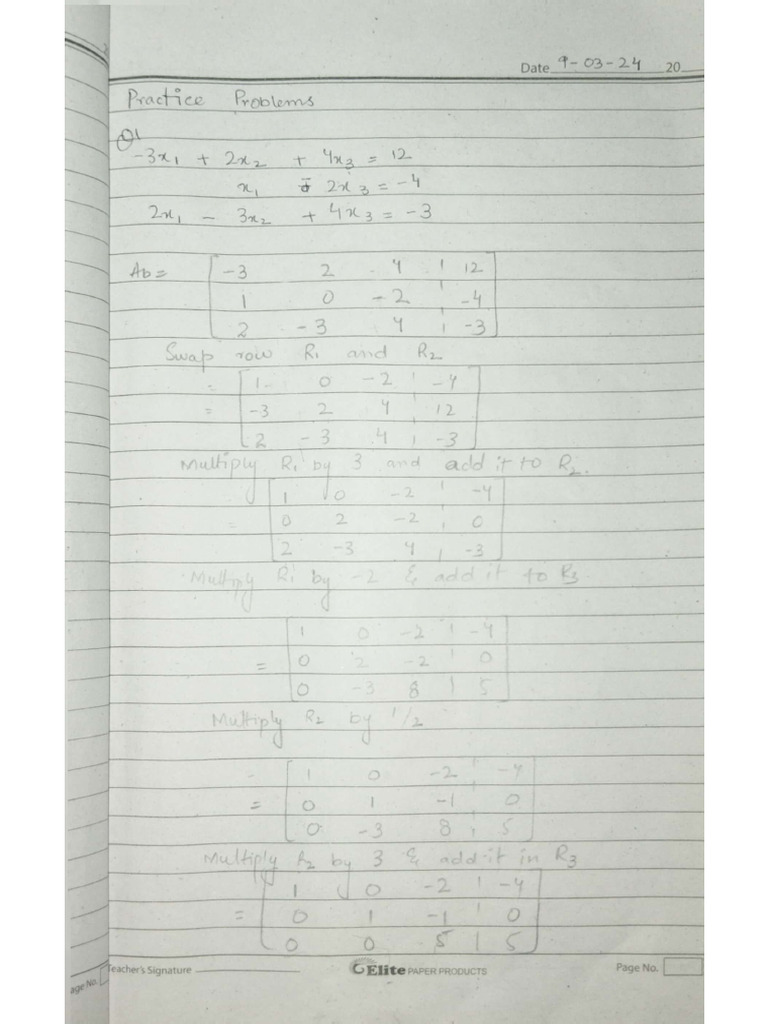 Date 9-03-24 20
Practice Problems
Q1
-3x₁ + 2x₂ + 4x₃ = 12
x₁ - 2x₃ = -4
2x₁ - 3x₂ + 4x₃ = -3
Ab = -3 2 4 12
1 0 -2 -4
2 -3 4 -3
Swap row R₁ and R₂
= 1 0 -2 -4
= -3 2 4 12
2 -3 4 -3
Multiply R₁ by 3 and add it to R₂.
1 0 -2 -4
= 0 2 -2 0
2 -3 4 -3
Multiply R₁ by -2 & add it to R₃
1 0 -2 -4
= 0 2 -2 0
0 -3 8 5
Multiply R₂ by 1/2
1 0 -2 -4
= 0 1 -1 0
0 -3 8 5
Multiply R₂ by 3 & add it in R₃
1 0 -2 -4
= 0 1 -1 0
0 0 5 5
Teacher's Signature Elite PAPER PRODUCTS Page No.
age No.